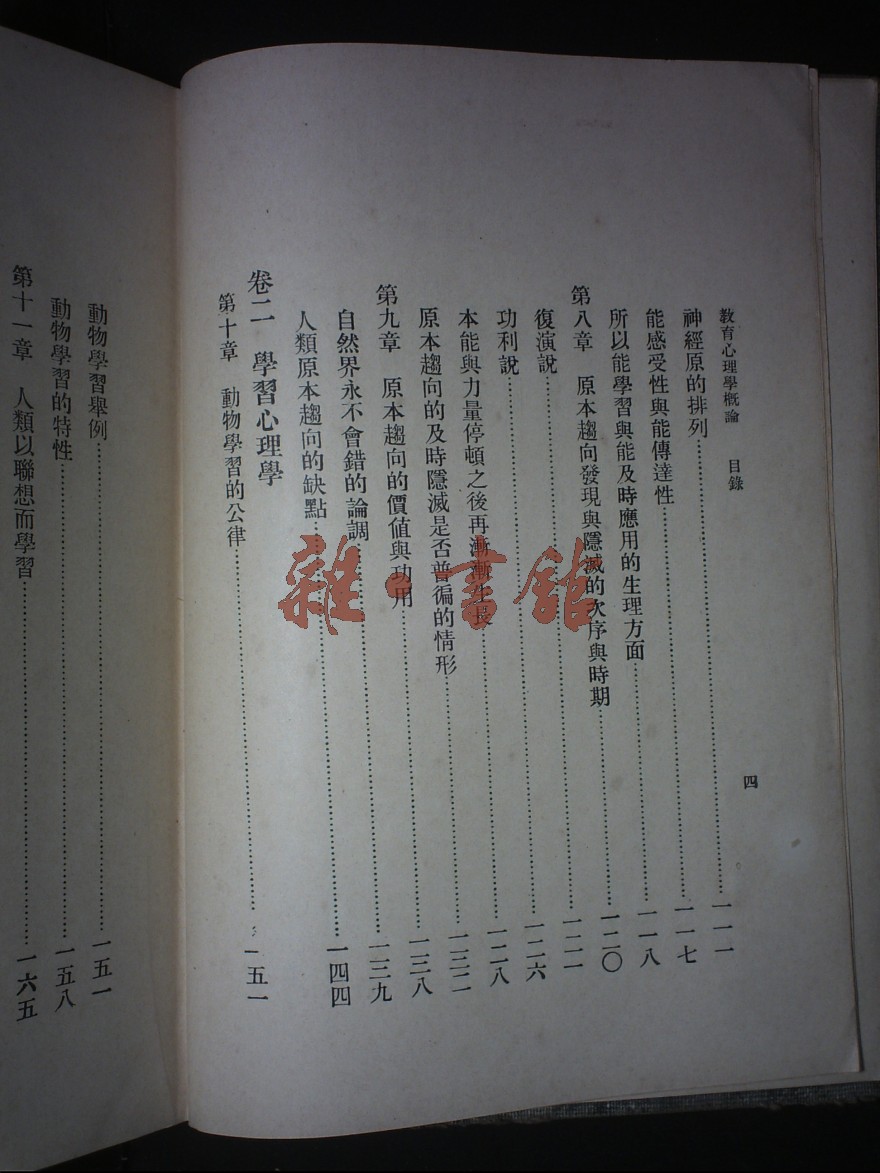 教育心理學概論 目錄 四
神經原的排列……一一一
能感受性與能傳達性……一一七
所以能學習與能及時應用的生理方面……一一八
第八章 原本趨向發現與隱滅的次序與時期……一二〇
復演說……一二一
功利說……一二六
本能與力量停頓之後再漸漸生長……一二八
原本趨向的及時隱滅是否普徧的情形……一三二
第九章 原本趨向的價值與功用……一三八
自然界永不會錯的論調……一三九
人類原本趨向的缺點……一四四
卷二 學習心理學
第十章 動物學習的公律……一五一
動物學習舉例……一五一
動物學習的特性……一五八
第十一章 人類以聯想而學習……一六五
雜·書館